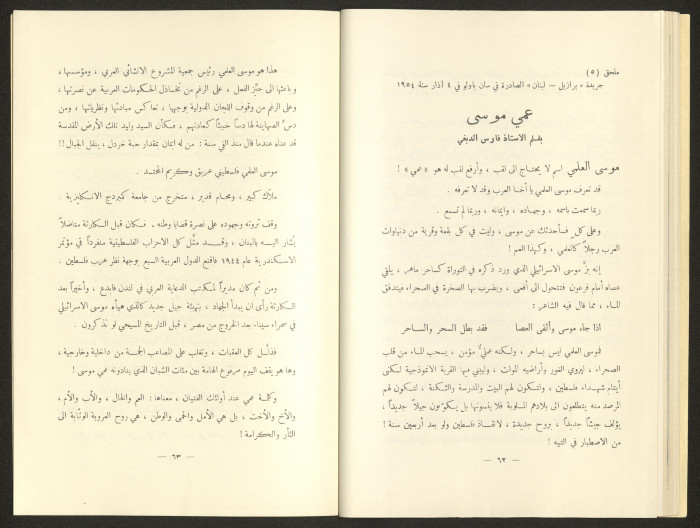 ملحق (٥)
جريدة «برازيل – لبنان» الصادرة في سان باولو في ٤ آذار سنة ١٩٥٤
عمي موسى
بقلم الاستاذ فارس الدبغي
موسى العلمي اسم لا يحتاج الى لقب ، وأرفع لقب له هو «عمي» !
قد تعرف موسى العلمي يا أخا العرب وقد لا تعرفه .
ربما سمعت باسمه ، وجهاده ، وايمانه ، وربما لم تسمع .
وعلى كل ٍ فسأحدثك عن موسى ، وليت في كل بقعة وقرية من دنياوات
العرب رجلاً كالعلمي ، وكهذا العم !
إنه بزّ موسى الاسرائيلي الذي ورد ذكره في التوراة كساحر ماهر ، يلقي
عصاه أمام فرعون فتتحول الى أفعى ، ويضرب بها الصخرة في الصحراء فيتدفق
الماء ، مما قال فيه الشاعر :
اذا جاء موسى وألقى العصا فقد بطل السحر والساحر
فموسى العلمي ليس بساحر ، ولكنه عمليٌّ مؤمن ، يسحب الماء من قلب
الصحراء ، ليروي الغور وأراضيه الموات ، وليبني فيها القرية الانموذجية لسكنى
أيتام شهداء فلسطين ، ولتكون لهم البيت والمدرسة والثكنة ، لتكون لهم
المرصد منه يتطلعون الى بلادهم المسلوبة فلا ينسونها بل يسكونون جيلاً جديداً ،
يؤلف جيشاً جديداً ، بروح جديدة ، لانقاذ فلسطين ولو بعد أربعين سنة !
من الاصطبار في التيه !
— ٦٢ —
هذا هو موسى العلمي رئيس جمعية المشروع الانشائي العربي ، ومؤسسها ،
وباعثها الى حيّز الفعل ، على الرغم من تخاذل الحكومات العربية عن نصرتها ،
وعلى الرغم من وقوف اللجان الدولية بوجهها ، تعاكس مبادئها ونظرياتها ، ومن
دسّ الصهاينة لها دساً خبيثاً كعادتهم ، فكأن السيد وليد تلك الأرض المقدسة
قد عناه عندما قال منذ الفي سنة : من له ايمان بمقدار حبة خردل ، ينقل الجبال !!
موسى العلمي فلسطيني عريق وكريم المحتد .
ملاّك كبير ، ومحام قدير ، متخرج من جامعة كمبردج الانكليزية .
وقف ثروته وجهوده على نصرة قضايا وطنه . فكان قبل الكارثة مناضلاً
يشار اليه بالبنان ، وقد مثّل كل الاحزاب الفلسطينية منفرداً في مؤتمر
الاسكندرية عام ١٩٤٤ فاقنع الدول العربية السبع بوجهة نظر عريب فلسطين .
ومن ثم كان مديراً لمكتب الدعاية العربي في لندن فابدع ، وأخيراً بعد
الكارثة رأى ان يبدأ الجهاد ، بتهيئة جيل جديد كالذي هيأه موسى الاسرائيلي
في صحراء سيناء بعد الخروج من مصر ، قبل التاريخ المسيحي لو تذكرون .
فذلّل كل العقبات ، وتغلب على المصاعب الجمة من داخلية وخارجية ،
وها هو يقف اليوم مرفوع الهامة بين مئات الشبان الذي ينادونه عمي موسى !
وكلمة عمي عند أولئك الفتيان ، معناها : العم والخال ، والأب والأم ،
والأخ والأخت ، بل هي الأمل والحمى والوطن ، هي روح العروبة الوثابة الى
الثأر والكرامة !
— ٦٣ —